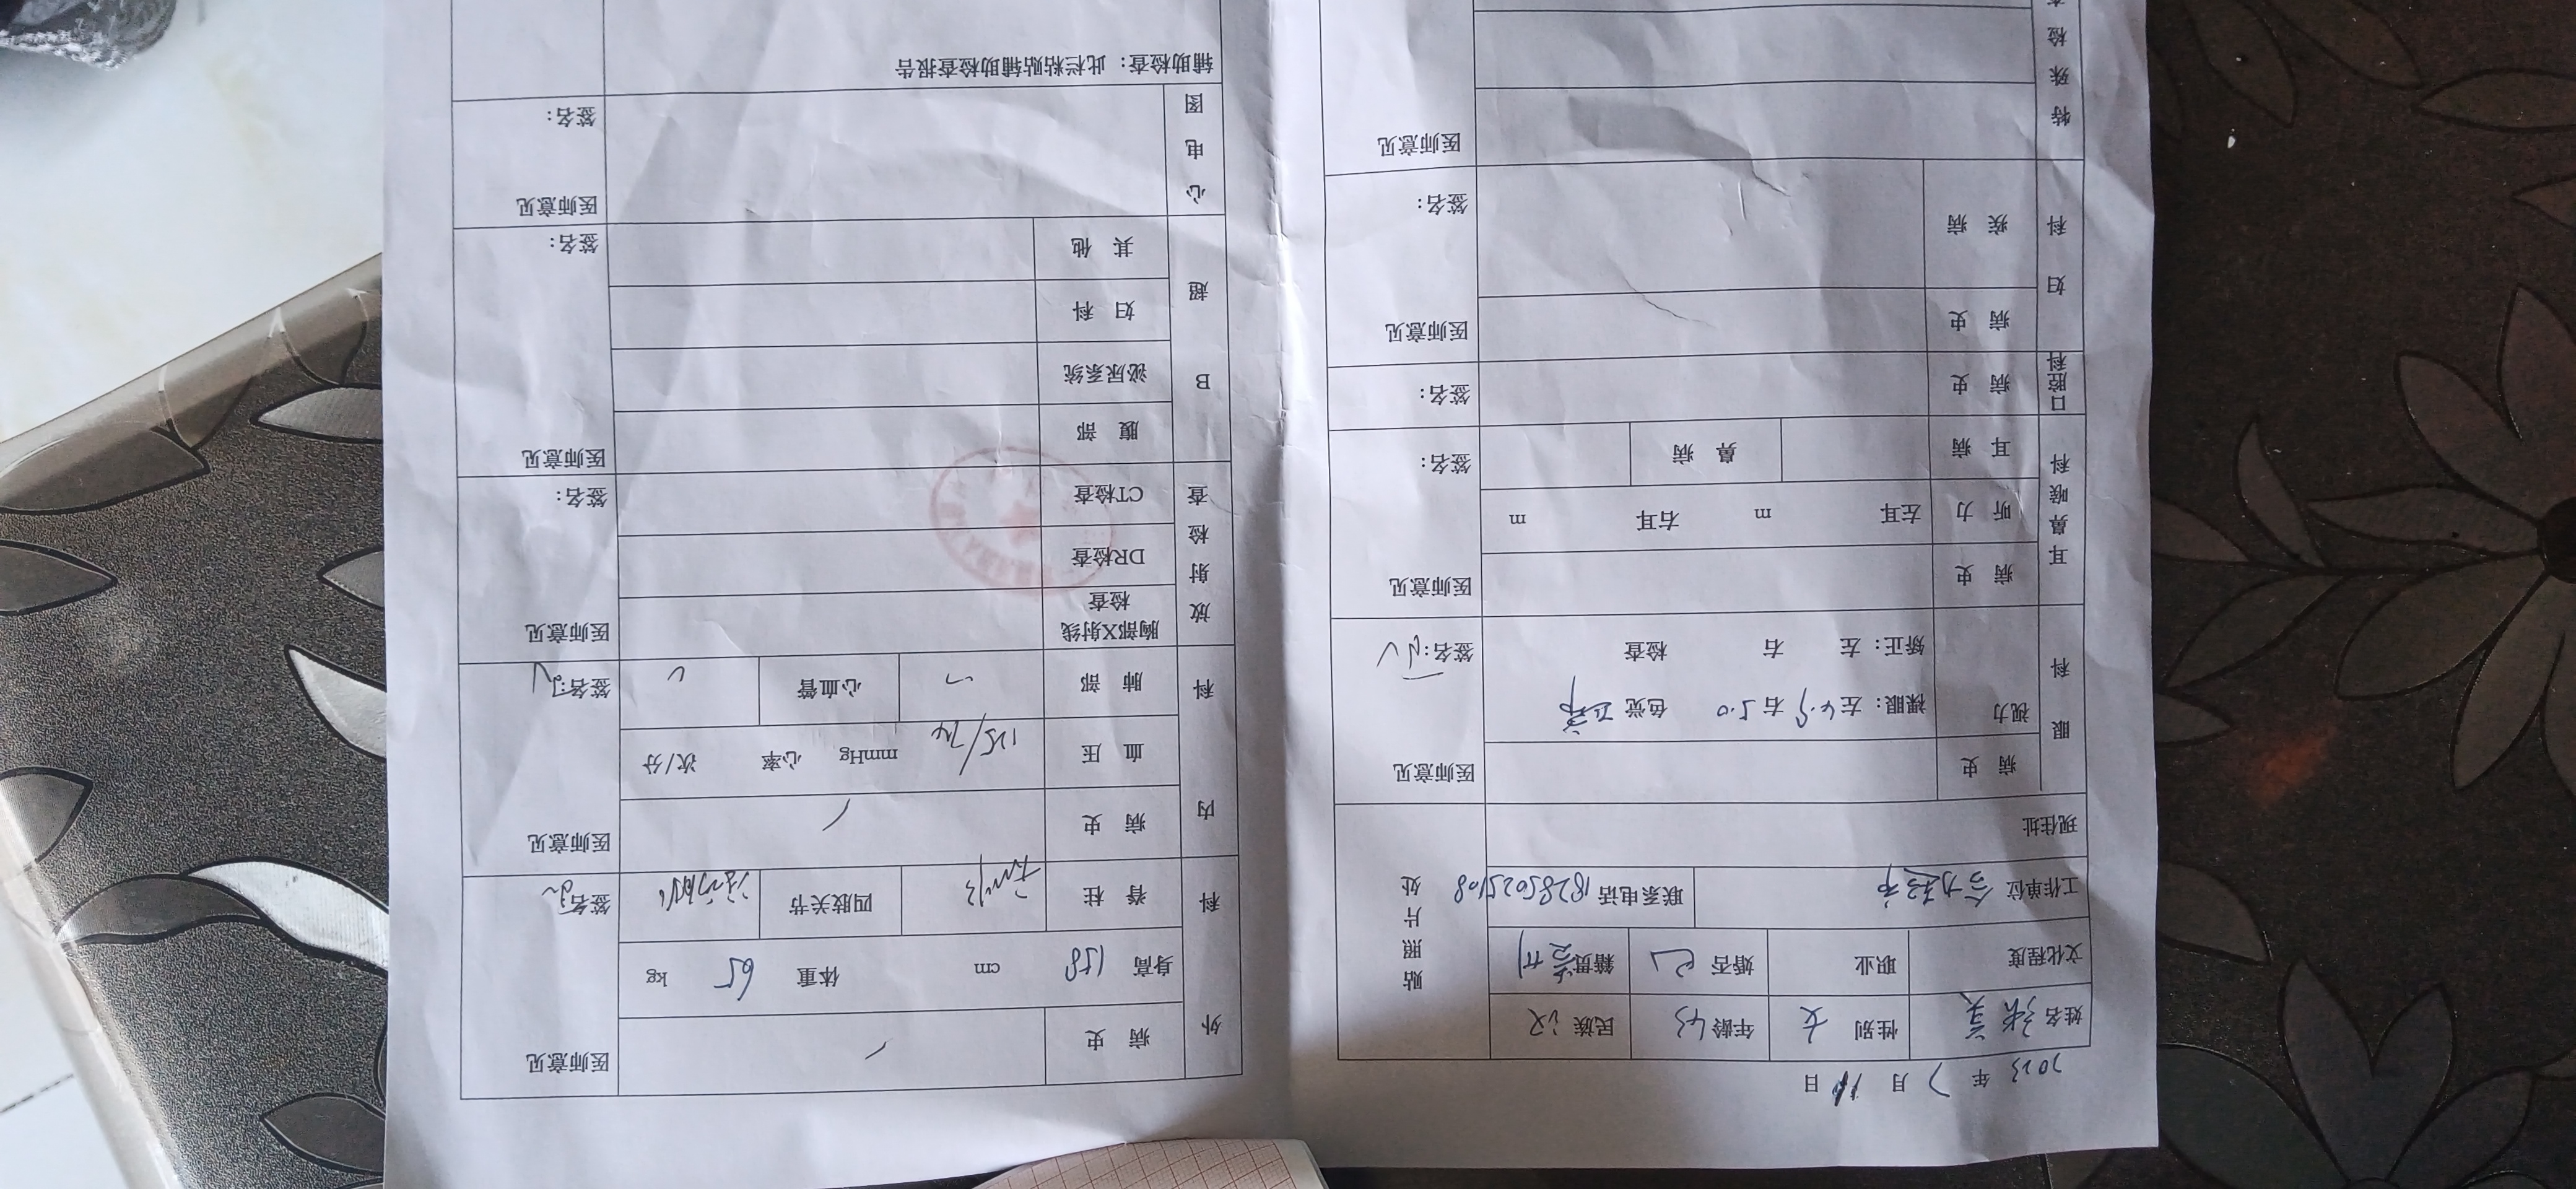 2023 年 7 月 日
姓名 张美 性别 女 年龄 43 民族 汉
文化程度 职业 婚否 已 籍贯
工作单位 联系电话 18285025108
现住址
贴照片处
眼科
病史
视力
裸眼：左 4.9 右 5.0 色觉 正常
矫正：左 右 检查
医师意见
签名：
耳鼻喉科
病史
听力 左耳 m 右耳 m
耳病 鼻病
医师意见
签名：
口腔科
病史
签名：
妇科
病史
疾病
医师意见
签名：
特殊检
医师意见
外科
病史 /
身高 158 cm 体重 65 kg
脊柱 四肢关节
医师意见
签名：
内科
病史 /
血压 115/74 mmHg 心率 次/分
肺部 心血管
医师意见
签名：
放射检查
胸部X射线检查
DR检查
CT检查
医师意见
签名：
B超
腹部
泌尿系统
妇科
其他
医师意见
签名：
心电图
医师意见
签名：
辅助检查：此栏粘贴辅助检查报告